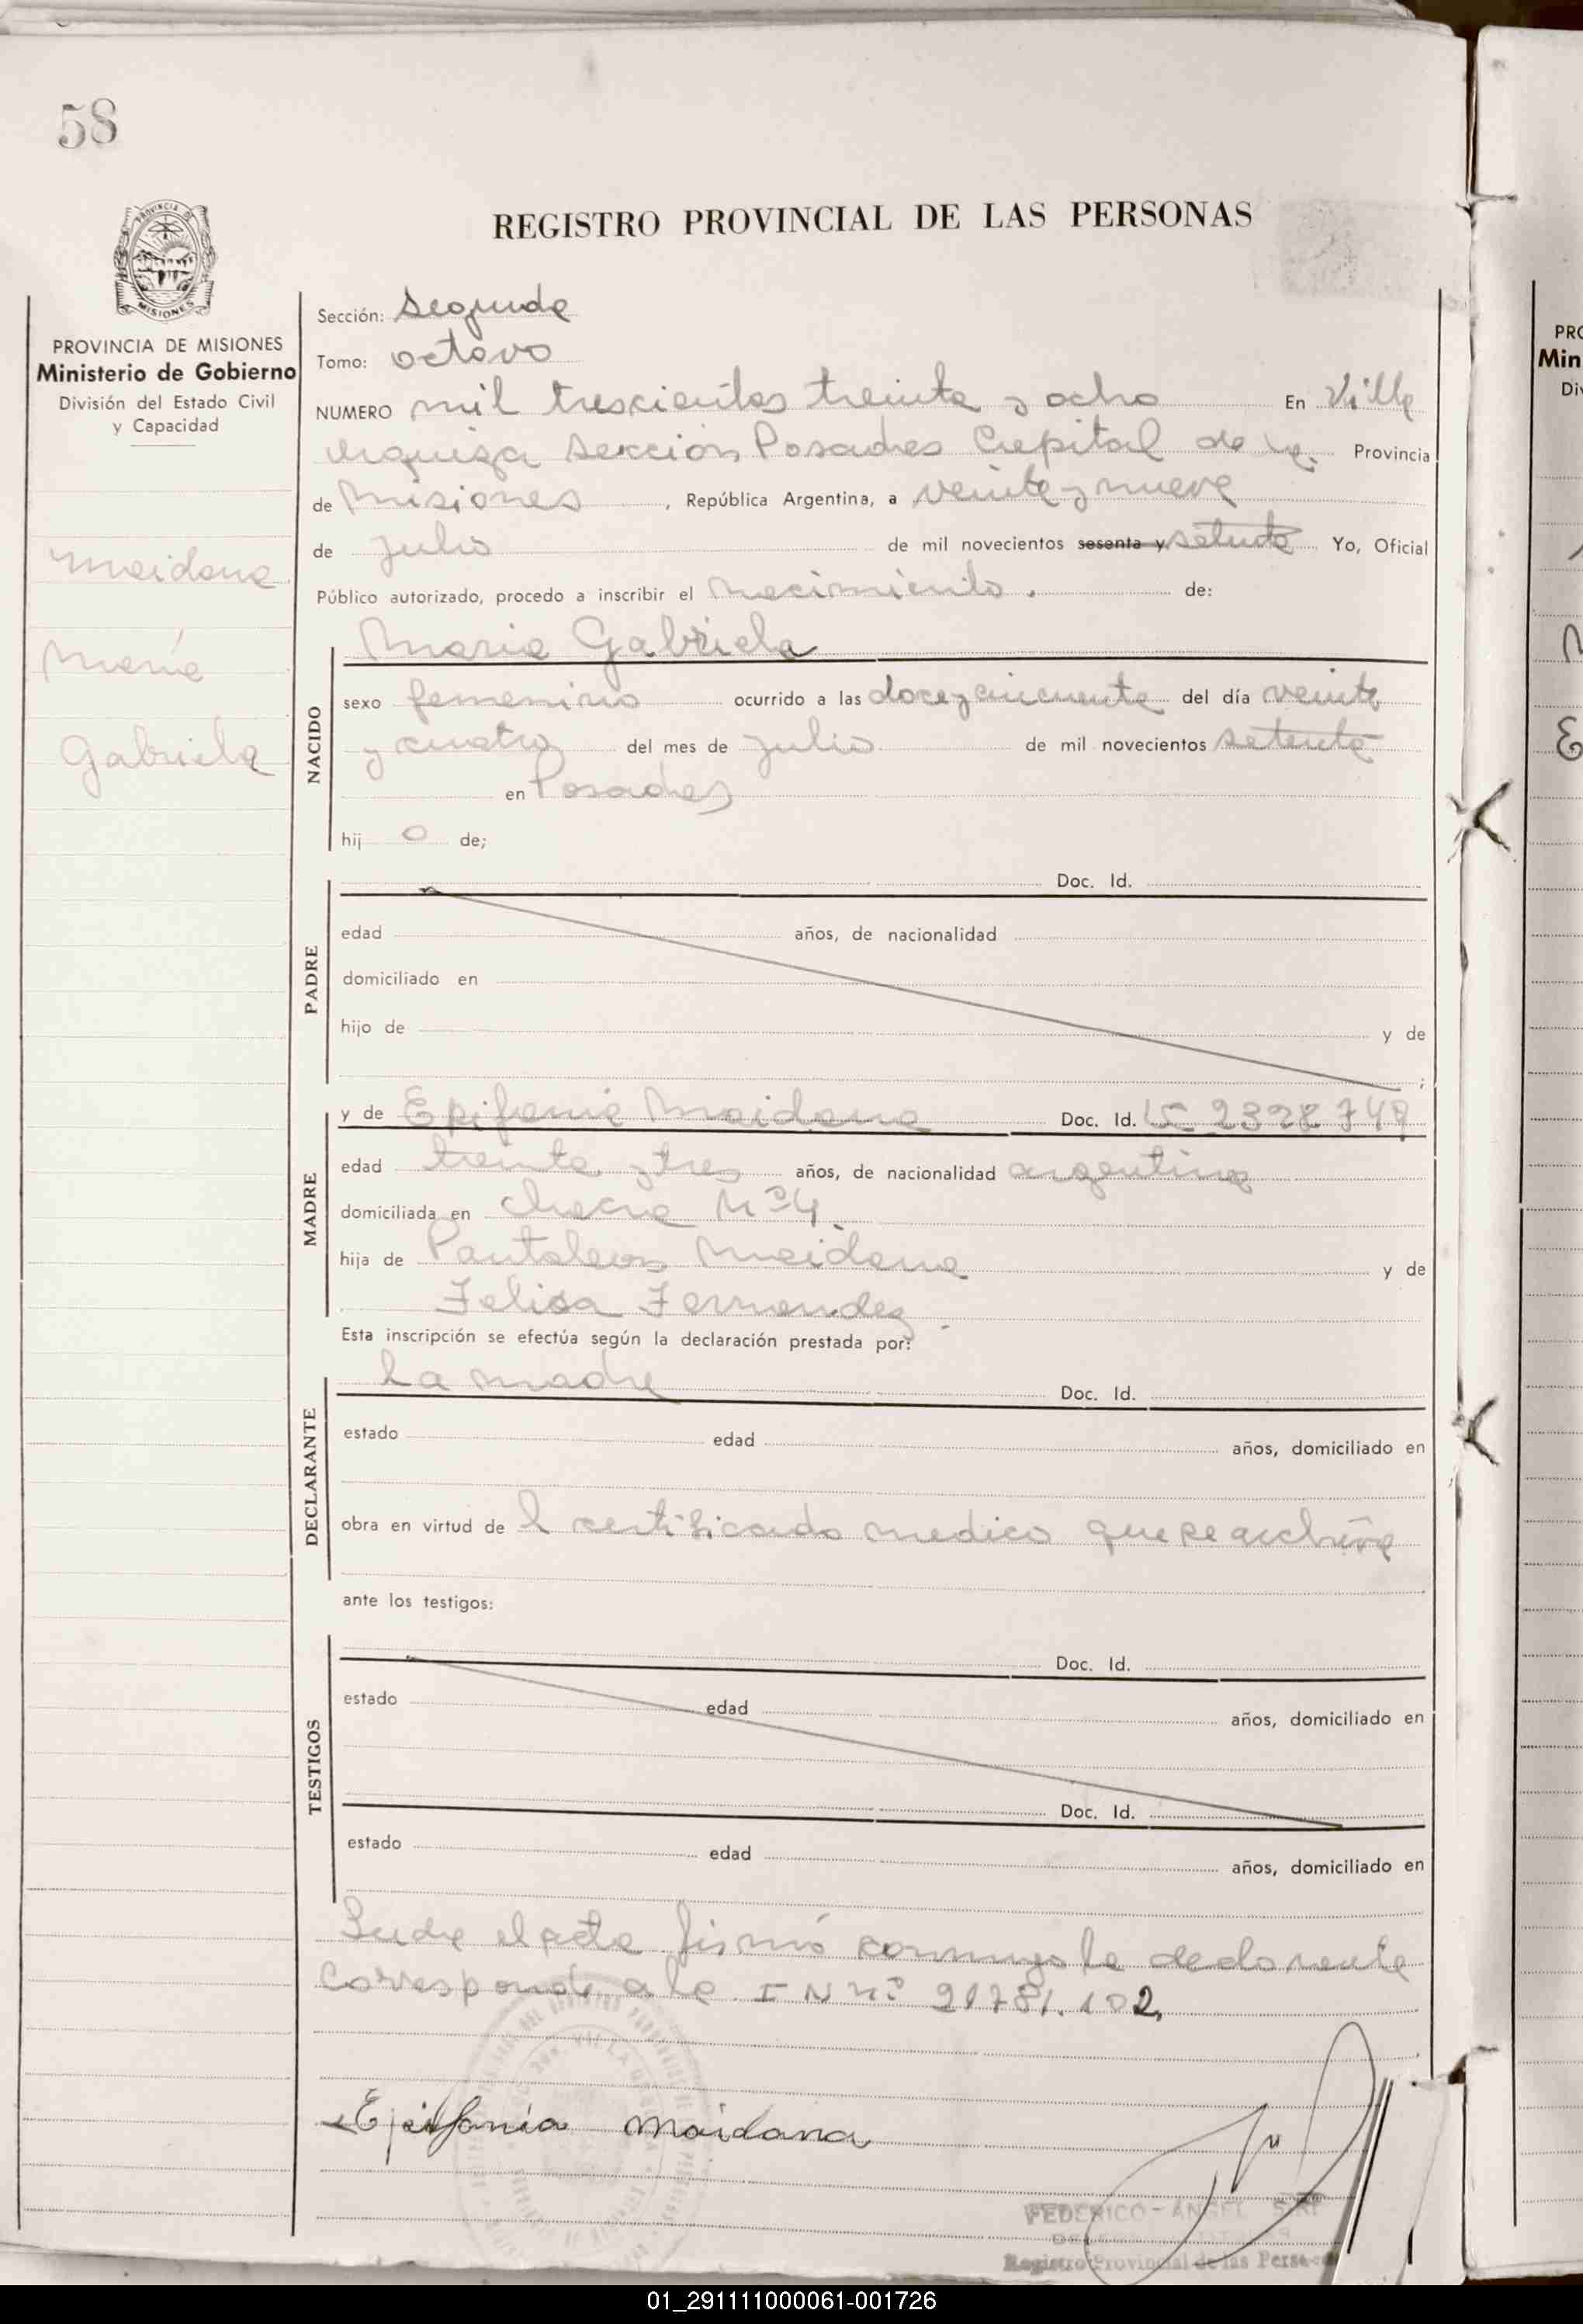 58
PROVINCIA DE MISIONES
REGISTRO PROVINCIAL DE LAS PERSONAS
PROVINCIA DE MISIONES
Ministerio de Gobierno
División del Estado Civil
y Capacidad
Maidana
María
Gabriela
Sección: Segunda
Tomo: octavo
NUMERO mil trescientos treinta y ocho En Villa
Urquiza Sección Posadas Capital de la Provincia
de Misiones, República Argentina, a veinte y nueve
de julio de mil novecientos sesenta y setenta Yo, Oficial
Público autorizado, procedo a inscribir el nacimiento. de:
NACIDO
Maria Gabriela
sexo femenino ocurrido a las doce y cincuenta del día veinte
y cuatro del mes de julio de mil novecientos setenta
en Posadas
hij o de;
PADRE
Doc. Id.
edad años, de nacionalidad
domiciliado en
hijo de y de
;
MADRE
y de Epifania Maidana Doc. Id. LC 2328749
edad treinta y tres años, de nacionalidad argentina
domiciliada en chacra Nº 4
hija de Pantaleon Maidana y de
Felisa Fernandez
Esta inscripción se efectúa según la declaración prestada por:
DECLARANTE
La madre Doc. Id.
estado edad años, domiciliado en
obra en virtud de l certificado medico que se archiva
ante los testigos:
TESTIGOS
Doc. Id.
estado edad años, domiciliado en
Doc. Id.
estado edad años, domiciliado en
el acta firmó conmigo la declarante
corresponde a la I N nº 21781.102.
Epifania Maidana
FEDERICO - ANGEL
Registro Provincial de las Perso
PRO
Min
Div
01_291111000061-001726